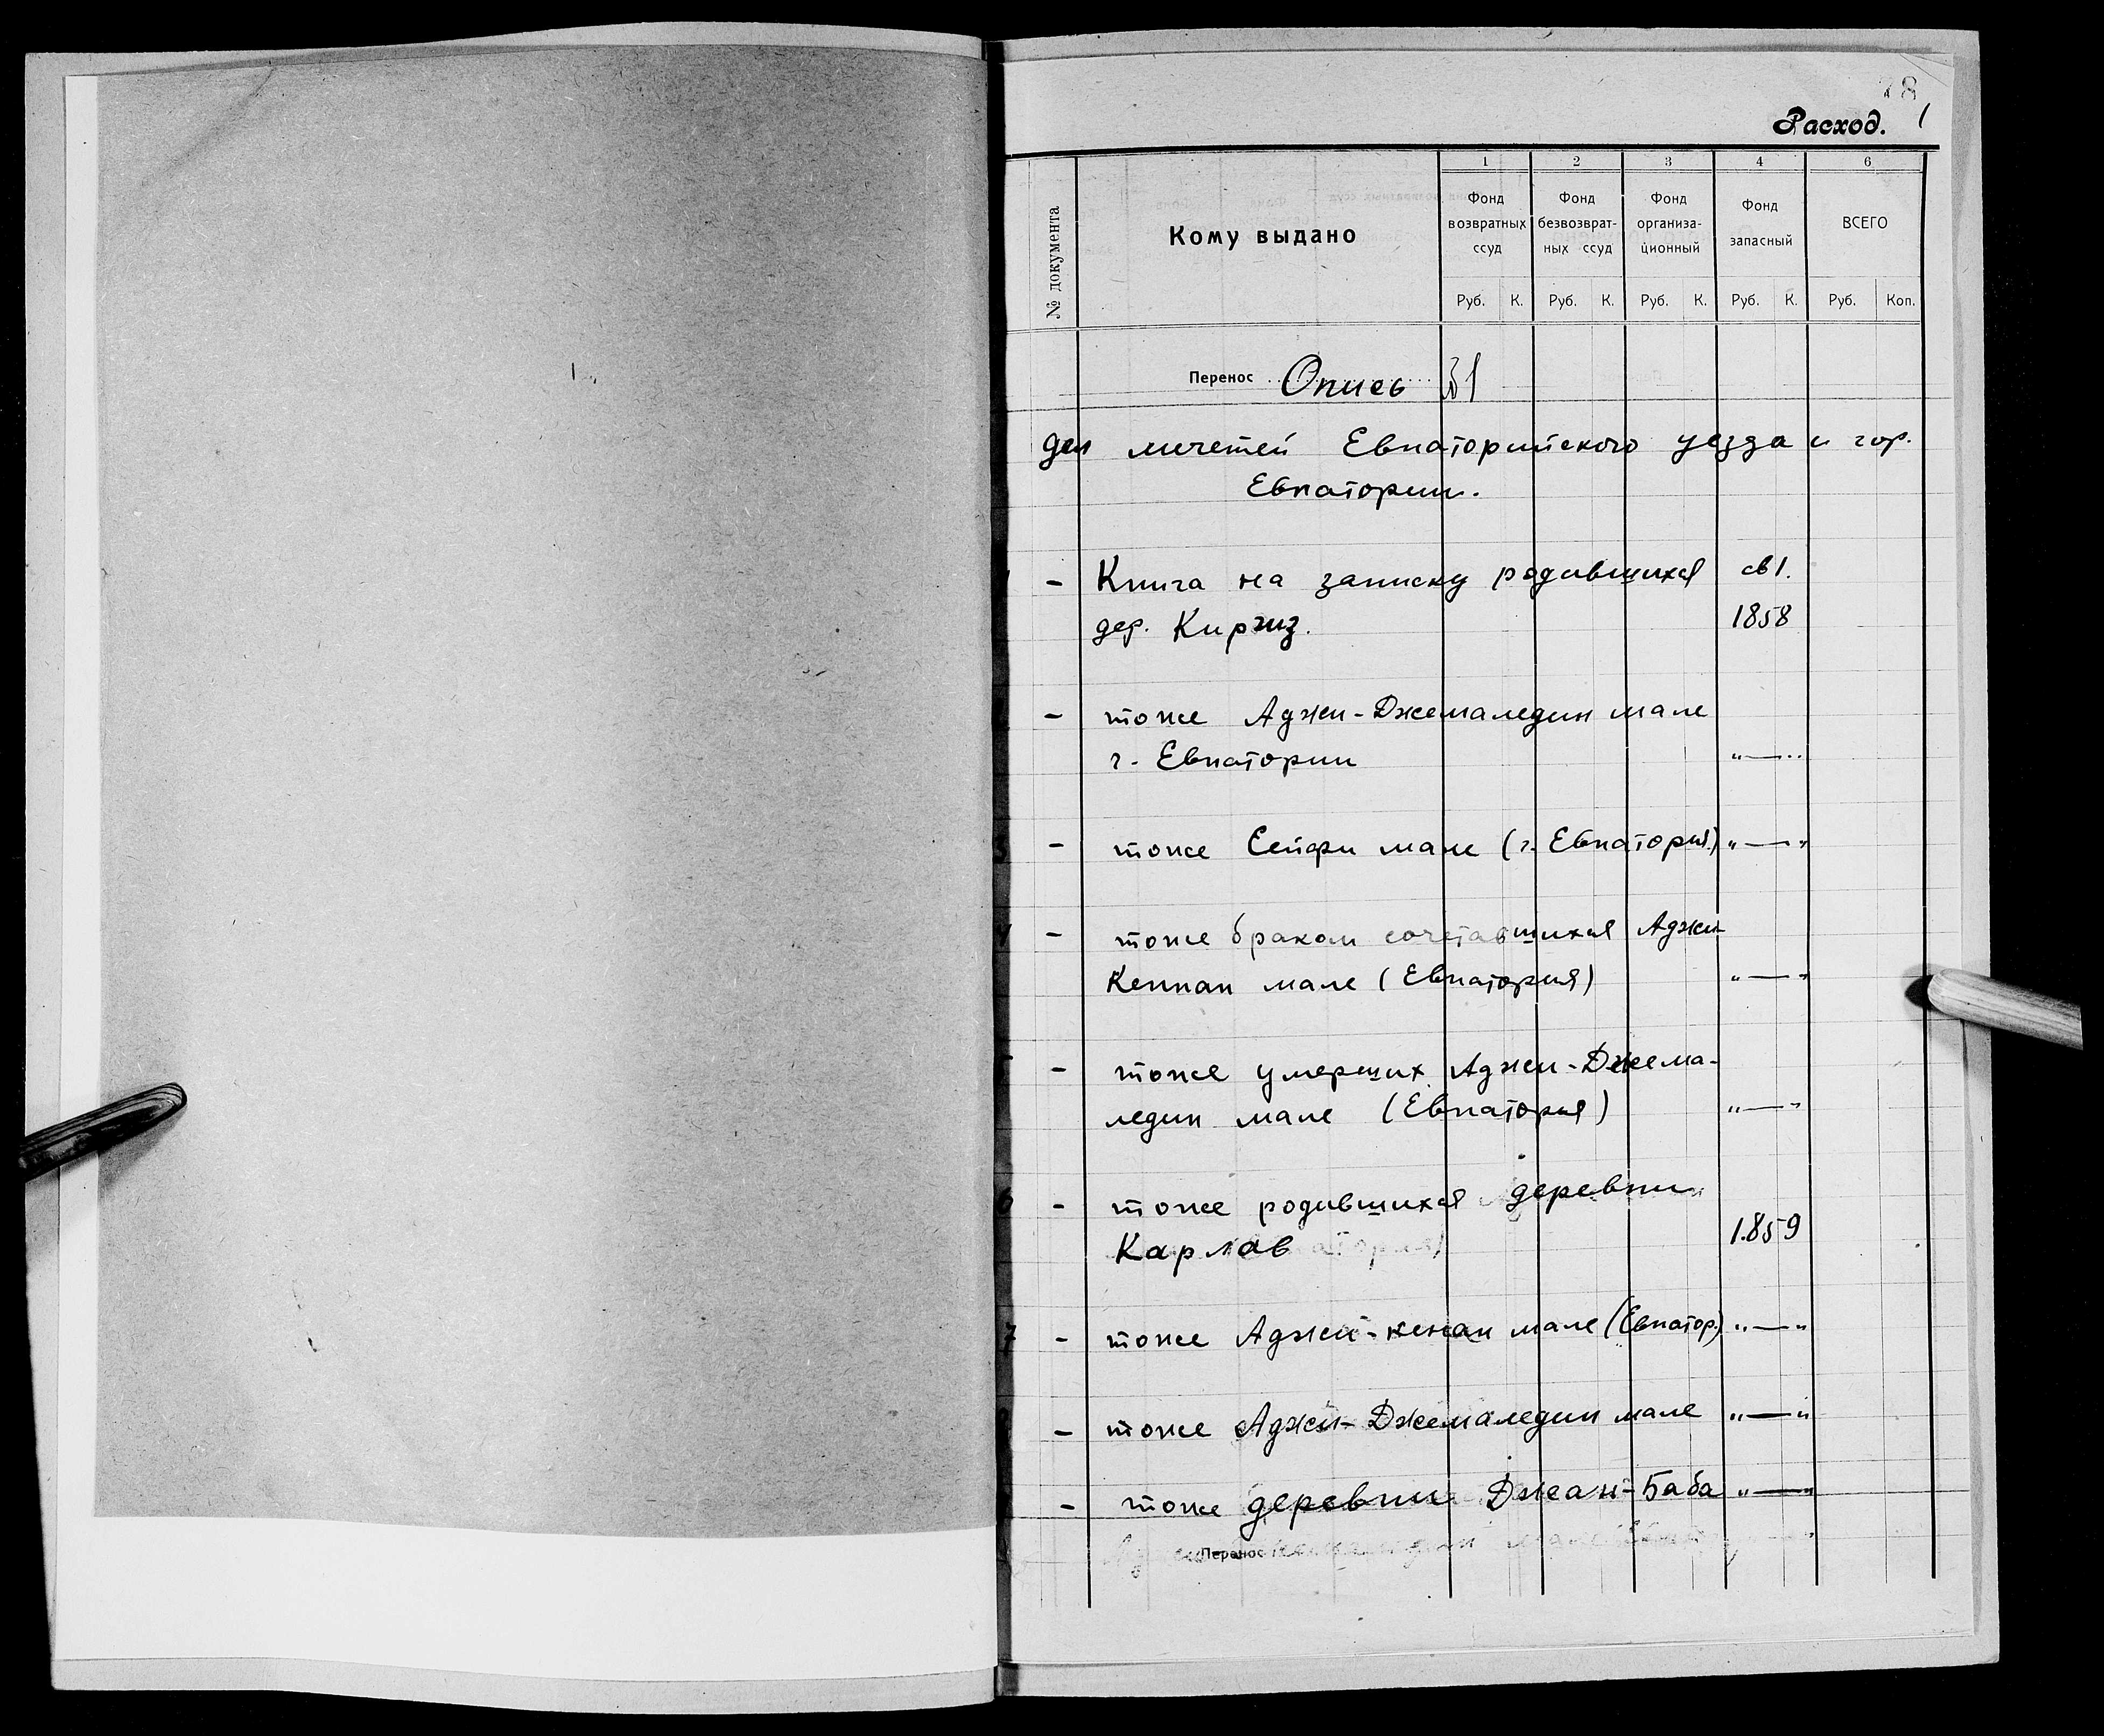 Расход. 1
№ документа
Кому выдано
1 2 3 4 6
Фонд возвратных ссуд
Фонд безвозврат-ных ссуд
Фонд организа-ционный
Фонд запасный
ВСЕГО
Руб. К. Руб. К. Руб. К. Руб. К. Руб. Коп.
Перенос Опись №1
дел мечетей Евпаторийского уезда и гор.
Евпатории.
- Книга на записку родившихся св 1.
дер. Киргиз. 1858
- тоже Аджи-Джемаледин мале
г. Евпатории "—"
3 - тоже Сейфи мале (г. Евпатория) "—"
4 - тоже браком сочетавшихся Аджи
Кеннан мале (Евпатория) "—"
- тоже умерших Аджи-Джема-
ледин мале (Евпатория) "—"
6 - тоже родившихся деревни
Карлав 1859
7 - тоже Аджи-кенан мале (Евпатор.) "—"
- тоже Аджи-Джемаледин мале "—"
- тоже деревни Джан-Баба "—"
Перенос